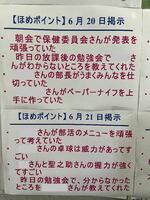 【ほめポイント】6月20日掲示
朝会で保健委員会さんが発表を
頑張っていた
昨日の放課後の勉強会で さ
んがわからないところを教えてくれた
さんの部長がうまくみんなを仕
切っていた
さんがペーパーナイフを上
手に作っていた
【ほめポイント】6月21日掲示
さんが部活のメニューを頑張
って考えていた
さんの卓球は威力があってす
ごい
さんと聖之助さんの握力が強くて
すごい
昨日の勉強会で、分からなかった
ところを 教えてくれた